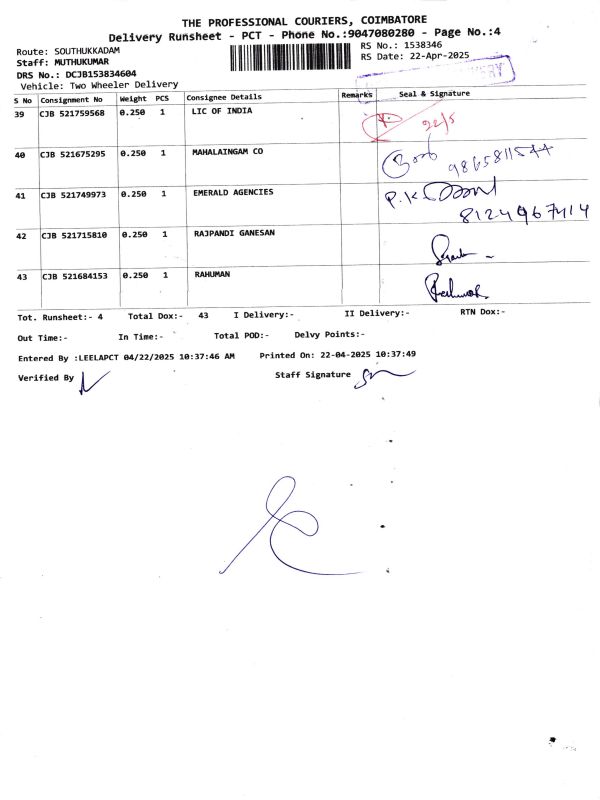 THE PROFESSIONAL COURIERS, COIMBATORE
Delivery Runsheet - PCT - Phone No.:9047080280 - Page No.:4
Route: SOUTHUKKADAM
RS No.: 1538346
Staff: MUTHUKUMAR
RS Date: 22-Apr-2025
DRS No.: DCJB153834604
Vehicle: Two Wheeler Delivery
S No Consignment No Weight PCS Consignee Details Remarks Seal & Signature
39 CJB 521759568 0.250 1 LIC OF INDIA
40 CJB 521675295 0.250 1 MAHALAINGAM CO 9865811544
41 CJB 521749973 0.250 1 EMERALD AGENCIES P.K
8124967414
42 CJB 521715810 0.250 1 RAJPANDI GANESAN
43 CJB 521684153 0.250 1 RAHUMAN
Tot. Runsheet:- 4 Total Dox:- 43 I Delivery:- II Delivery:- RTN Dox:-
Out Time:- In Time:- Total POD:- Delvy Points:-
Entered By :LEELAPCT 04/22/2025 10:37:46 AM Printed On: 22-04-2025 10:37:49
Verified By Staff Signature